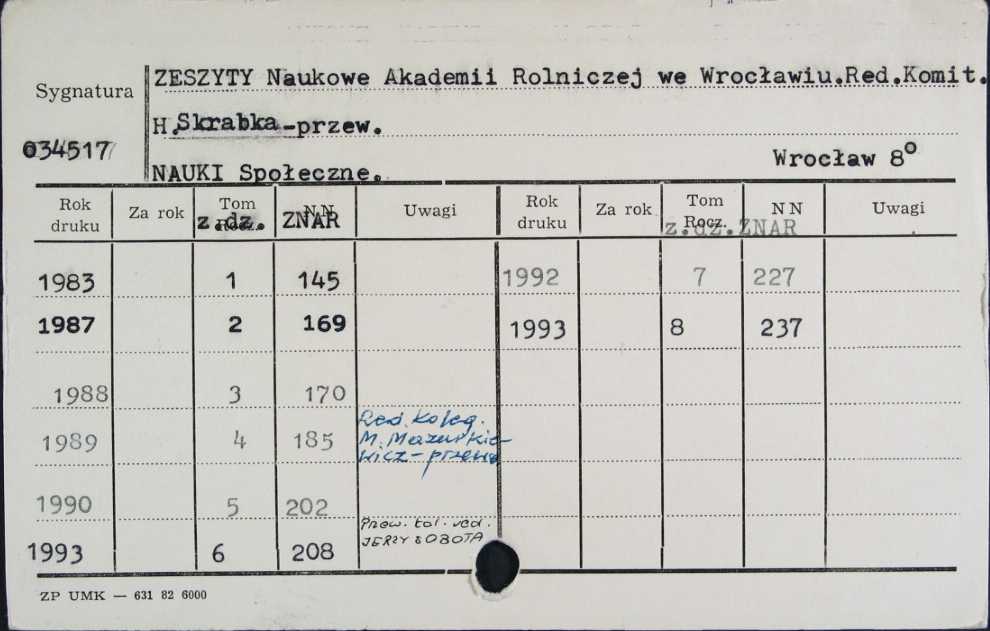 ZESZYTY Naukowe Akademii Rolniczej we Wrocławiu.Red.Komit.
Sygnatura
H.Skrabka-przew.
034517
Wrocław 8°
NAUKI Społeczne.
Rok druku Za rok Tom Rocz. NN Uwagi Rok druku Za rok Tom Rocz. NN Uwagi
z.dz. ZNAR z.dz.ZNAR
1983 1 145 1992 7 227
1987 2 169 1993 8 237
1988 3 170
1989 4 185 Red. Koleg.
M. Mazurkie-
wicz-przew
1990 5 202
Przew. kol. red.
1993 6 208 JERZY SOBOTA
ZP UMK — 631 82 6000